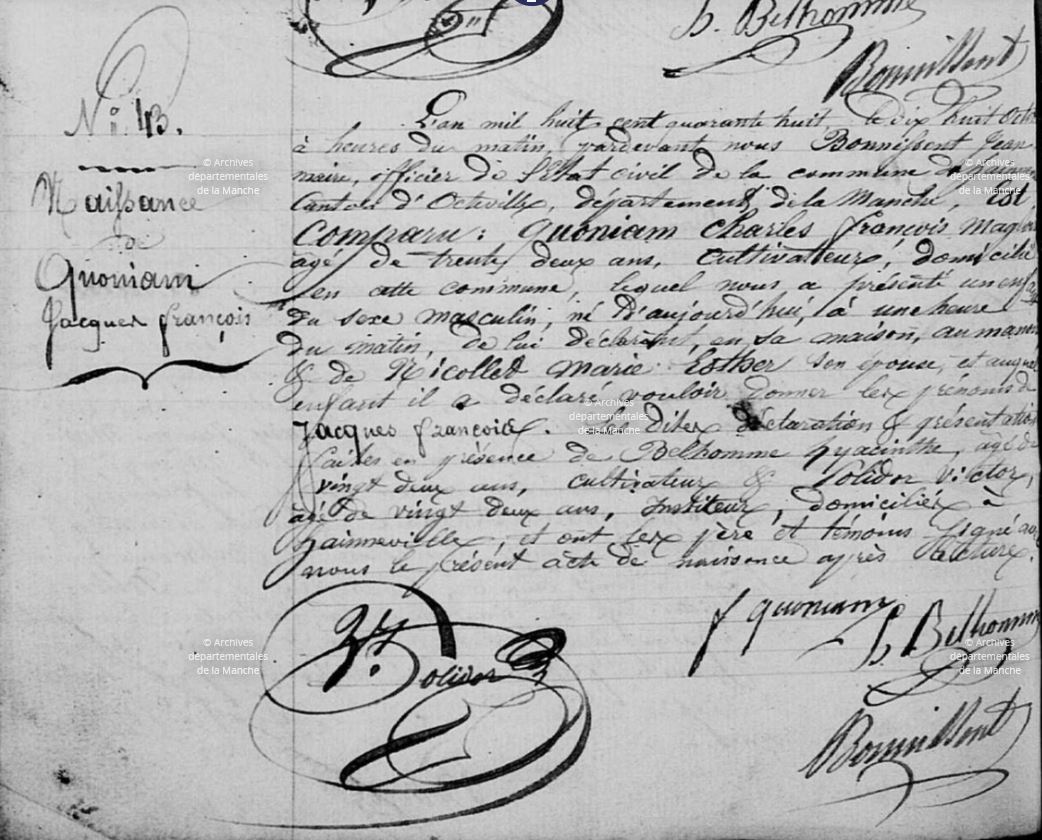 h. Belhomme
Bonnissent
N° 43.
Naissance
de
Quoniam
Jacques françois
L'an mil huit cent quarante huit, le dix huit
à heures du matin, pardevant nous Bonnissent Jean
maire, officier de l'état civil de la commune
Canton d'Octeville, département de la Manche, est
comparu : Quoniam Charles françois
agé de trente deux ans, Cultivateur, domicilié
en cette commune, lequel nous a présenté un
du sexe masculin, né d'aujourd'hui, à une heure
du matin, de lui déclarant, en sa maison, au
& de Nicolled marie Esther son épouse, et auquel
enfant il a déclaré vouloir donner les prenoms de
Jacques françois. Les dites déclaration & présentation
faites en présence de Belhomme hyacinthe, agé de
vingt deux ans, cultivateur & Polidor victor,
agé de vingt deux ans, Instituteur, domiciliés à
hainneville, et ont les père et témoins signé avec
nous le présent acte de naissance après lecture.
f quoniam
h. Belhomme
V. Polidor
Bonnissent
© Archives
départementales
de la Manche
© Archives
départementales
de la Manche
© Archives
départementales
de la Manche
© Archives
départementales
de la Manche
© Archives
départementales
de la Manche